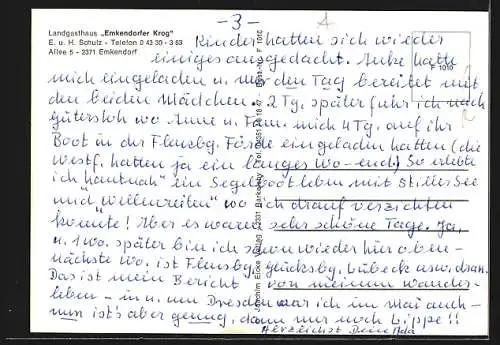 -3-
Landgasthaus „Emkendorfer Krog"
E. u. H. Schulz - Telefon 0 43 30 - 3 63
Allee 5 - 2371 Emkendorf
F 1010
Kinder hatten sich wieder
einiges ausgedacht. Anke hatte
mich eingeladen u. mir den Tag bereitet mit
den beiden Mädchen. 2 Tg. später fuhr ich nach
Gütersloh wo Anne u. Fam. mich 4 Tg. auf ihr
Boot in der Flensbg. Förde eingeladen hatten (die
Westf. hatten ja ein langes wo-end) So erlebte
ich "hautnah" ein Segelbootleben mit stiller See
und "wellenreiten" wo ich drauf verzichten
konnte! Aber es waren sehr schöne Tage. Ja,
u. 1 wo. später bin ich schon wieder hier oben-
nächste wo. ist Flensbg, Glücksbg, Lübeck usw. dran.
Das ist mein Bericht von meinem Wander-
leben - in u. um Dresden war ich im Mai auch -
nun ist's aber genug, dann nur noch Lippe!!
Herzlichst Deine Ada